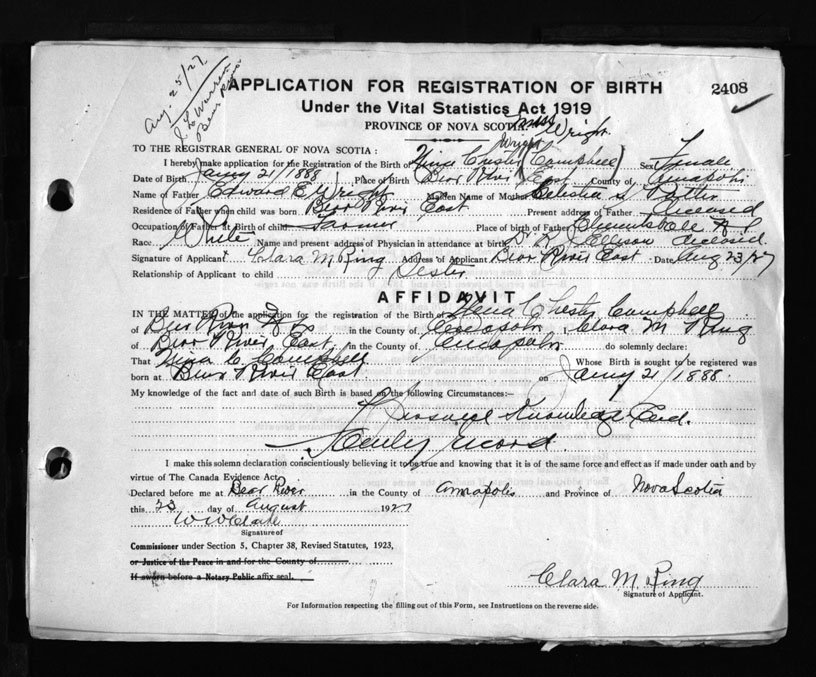 Aug. 25/27
J. L. Warren
Bear River
APPLICATION FOR REGISTRATION OF BIRTH
2408
Under the Vital Statistics Act 1919
PROVINCE OF NOVA SCOTIA.
Miss Wright
TO THE REGISTRAR GENERAL OF NOVA SCOTIA:
Wright
I hereby make application for the Registration of the Birth of Nina Chester (Campbell) Sex Female
Date of Birth Jany 21/1888 Place of Birth Bear River East County of Annapolis
Name of Father Edward E. Wright Maiden Name of Mother Celestia
Residence of Father when child was born Bear River East Present address of Father Deceased
Occupation of Father at Birth of child Farmer Place of birth of Father
Race White Name and present address of Physician in attendance at birth Dr. R. J. Ellison deceased.
Signature of Applicant Clara M Ring Address of Applicant Bear River East Date Aug 23/27
Relationship of Applicant to child Sister
AFFIDAVIT
IN THE MATTER of the application for the registration of the Birth of Nena Chester Campbell
of Bear River in the County of Annapolis, Clara M. Ring
of Bear River East, in the County of Annapolis do solemnly declare:
That Nina C. Campbell Whose Birth is sought to be registered was
born at Bear River East on Jany 21/1888.
My knowledge of the fact and date of such Birth is based on the following Circumstances:
Personal Knowledge and
Family record.
I make this solemn declaration conscientiously believing it to be true and knowing that it is of the same force and effect as if made under oath and by
virtue of The Canada Evidence Act.
Declared before me at Bear River in the County of Annapolis and Province of Nova Scotia
this 23 day of August 1927
W W Clarke
Signature of
Commissioner under Section 5, Chapter 38, Revised Statutes, 1923,
or Justice of the Peace in and for the County of
If sworn before a Notary Public affix seal.
Clara M Ring
Signature of Applicant.
For Information respecting the filling out of this Form, see Instructions on the reverse side.